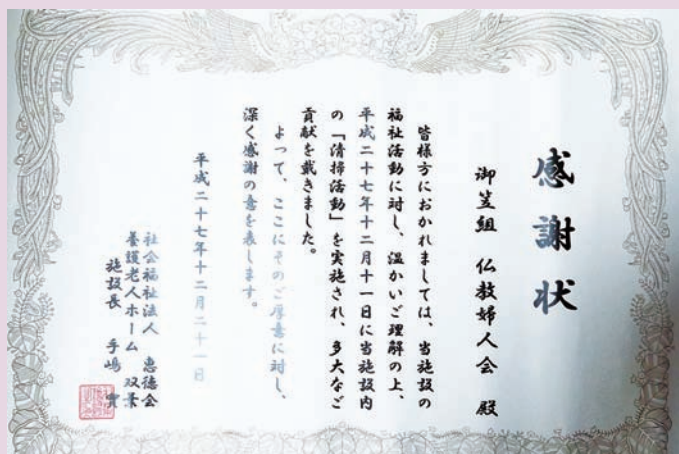 感謝状
御笠組　仏教婦人会　殿
皆様方におかれましては、当施設の
福祉活動に対し、温かいご理解の上、
平成二十七年十二月十一日に当施設内
の「清掃活動」を実施され、多大なご
貢献を戴きました。
よって、ここにそのご厚意に対し、
深く感謝の意を表します。
平成二十七年十二月二十一日
社会福祉法人　恵徳会
養護老人ホーム　双葉
施設長　手嶋　實